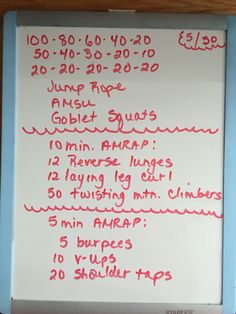 100-80-60-40-20
5/30
50-40-30-20-10
20-20-20-20-20
Jump Rope
AMSU
Goblet Squats
10 min. AMRAP:
12 Reverse lunges
12 laying leg curl
50 twisting mtn. climbers
5 min AMRAP:
5 burpees
10 v-ups
20 shoulder taps
STAPLES